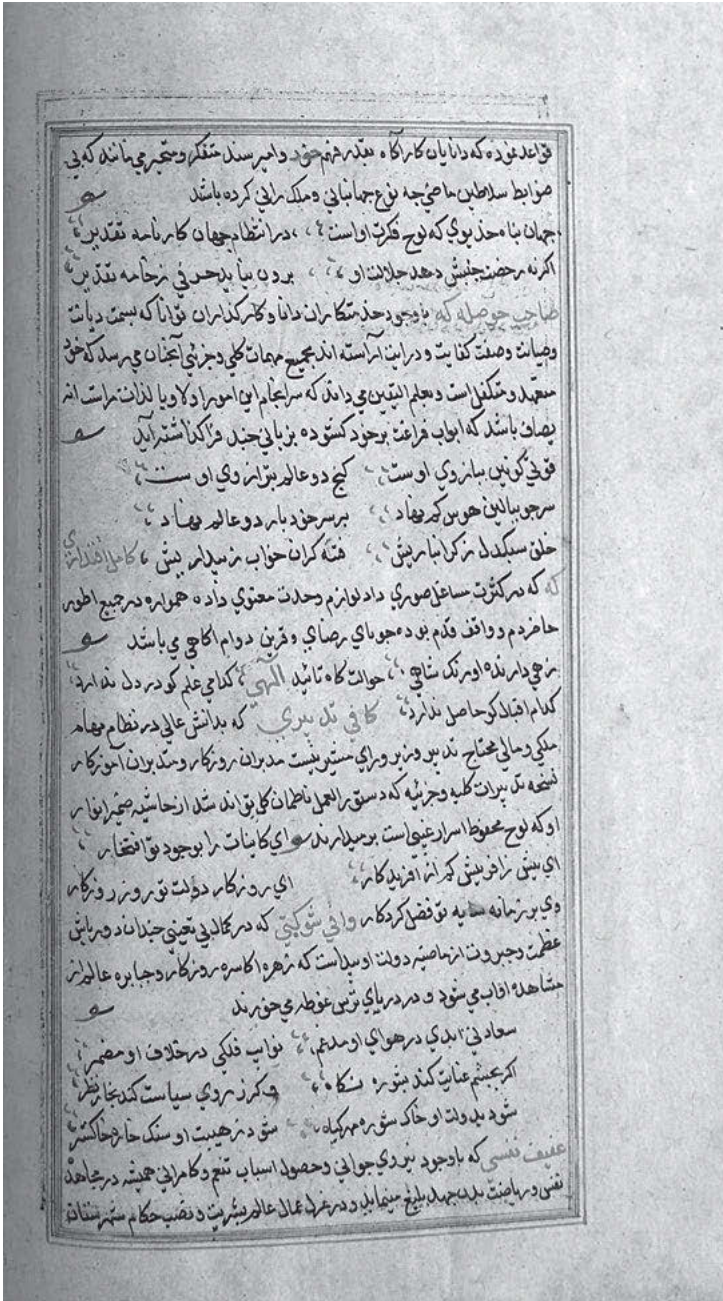 قواعد نموده که دانایان کارآگاه بقدر فهم خود وامیرسند متفکر و متحیر می مانند که بی
ضوابط سلاطین ماضی چه نوع جهانبانی و ملک رانی کرده باشد
جهان پناه خدیوی که لوح فکرت اوست در انتظام جهان کارنامه تقدیر
اگر نه رخصت جنبش دهد جلالت او برون نیاید حرفی ز خامه تقدیر
صاحب حوصله که باوجود خدمتکاران دانا و کارگذاران توانا که بسمت دیانت
وصیانت وصفت کفایت و درایت آراسته اند بجمیع مهمات کلی وجزئی آنچنان می رسد که خود
متعهد و متکفل است و بعلم الیقین می داند که سرانجام این امور اولا و بالذات
باشد که ابواب فراغت بر خود کشوده بزبانی چند فراگذاشته آید
قوت کونین ببازوی اوست کنج دو عالم بترازوی اوست
سر چو ببالین هوس کم نهاد بر سر خود بار دو عالم نهاد
خلق سبکدل ز گرانباریش فتنه گران خواب ز بیداریش کامل اقتداری
که در کثرت مشاغل صوری داد لوازم وحدت معنوی داده همواره در جمیع اطوار
حاضر دم و واقف قدم بوده جویای رضای و قرین دوام آگاهی می باشد
زهی دارنده اورنگ شاهی حوالت گاه تائید الهی کدامی علم کو در دل ندارد
کدام اقبال کو حاصل ندارد کافی تدبیری که بدانش عالی در نظام مهام
ملکی و مالی محتاج تدبیر وزیر و رای مشیر نیست مدبران روزگار و متدبران آموزگار
نسخه تدبیرات کلیه و جزئیه که دستور العمل ناظمان کل تواند شد از حاشیه ضمیر انوار
او که لوح محفوظ اسرار غیبی است برمیدارند ای کاینات را بوجود تو افتخار
ای بیش ز آفرینش کم از آفریدگار ای روزگار دولت تو روز روزگار
وی بر زمانه سایه تو فضل کردگار وافی شوکتی که در کمال بی تعینی چندان دورباش
عظمت و جبروت از ناصیه دولت او پیداست که زهره اکاسره روزگار و جبابره عالم از
مشاهده آن آب می شود و در دریای ترس غوطه می خورند
سعادت ابدی در هوای او مدغم نوایب فلکی در خلاف او مضمر
اگر بچشم عنایت کند بشوره نگاه وگر ز روی سیاست کند بخاره نظر
شود بدولت او خاک شوره مهرگیاه شود ز هیبت او سنگ خاره خاکستر
عفیف نفسی که باوجود نیروی جوانی و حصول اسباب تنعم و کامرانی همیشه در مجاهده
نفس و ریاضت بدن جهد بلیغ مینماید و در عزل عمال عالم بشریت و نصب حکام